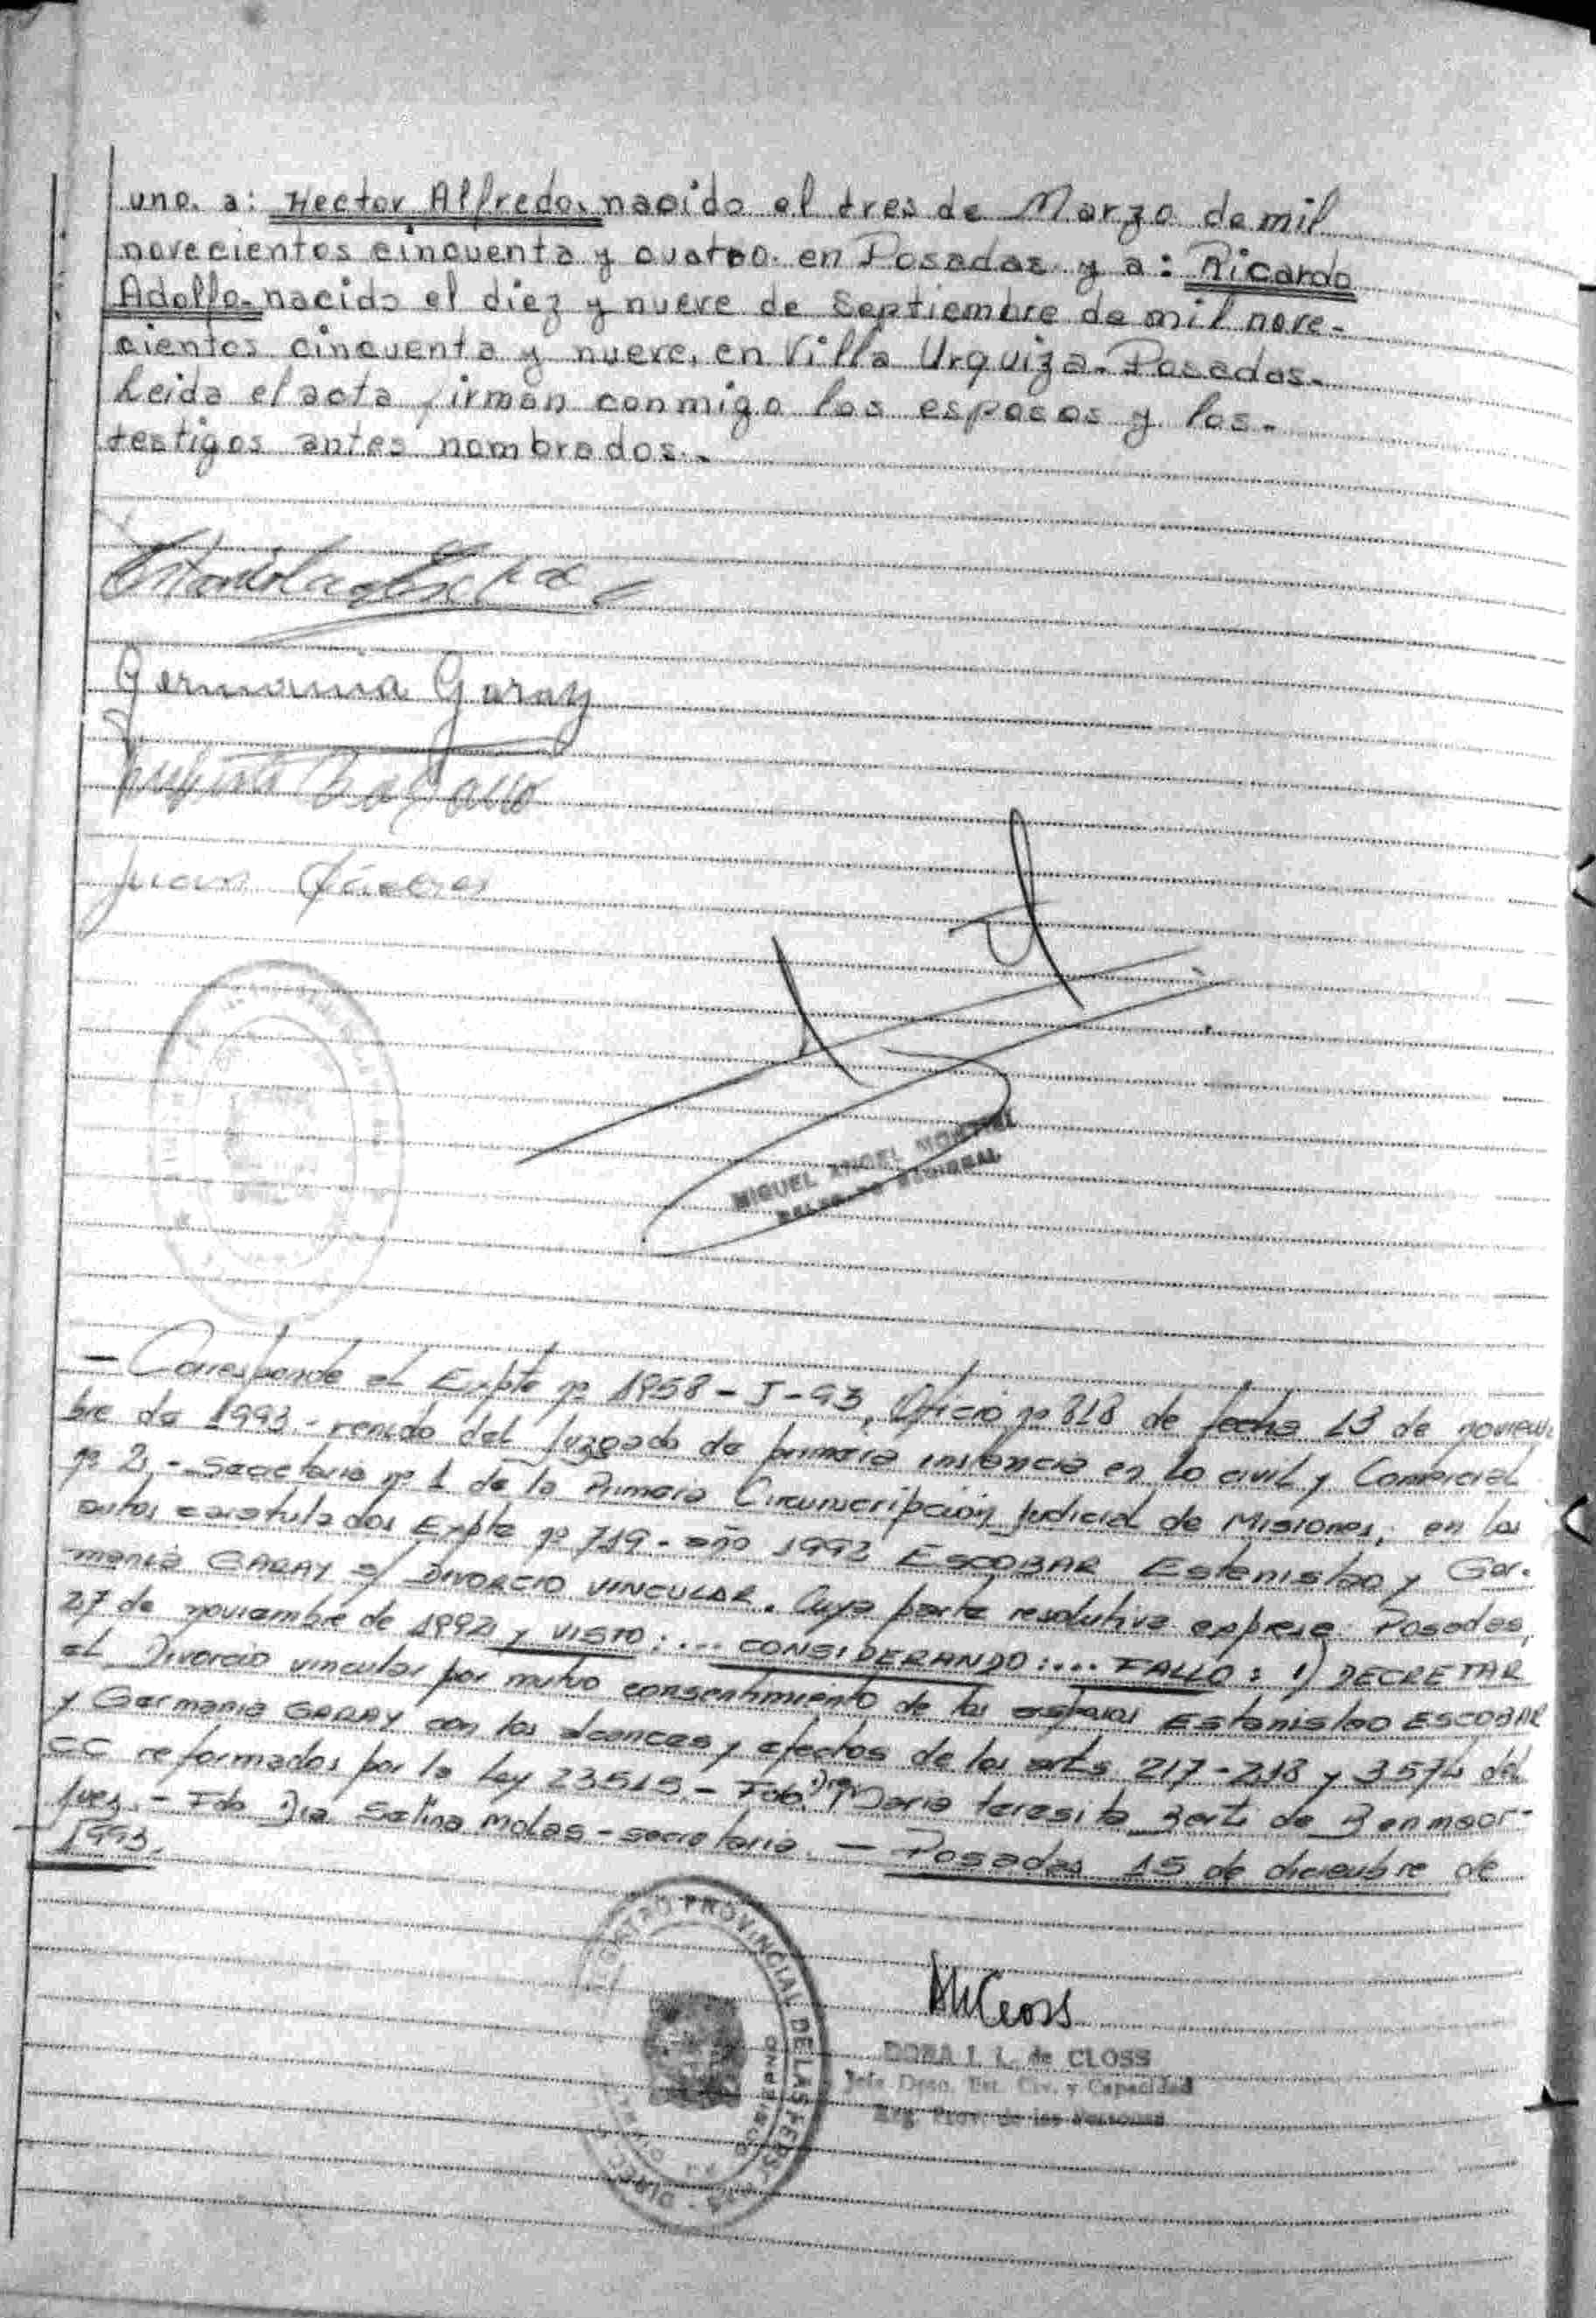 uno. a: Hector Alfredo. nacido el tres de Marzo de mil
novecientos cincuenta y cuatro. en Posadas y a: Ricardo
Adolfo. nacido el diez y nueve de Septiembre de mil nove-
cientos cincuenta y nueve, en Villa Urquiza. Posadas.
Leida el acta firman conmigo los esposos y los-
testigos antes nombrados.
Germania Garay
Juan
MIGUEL ANGEL
REGIONAL
- Corresponde al Expte nº 1958-J-93, Oficio nº 818 de fecha 13 de noviem
bre de 1993.- del Juzgado de primera instancia en lo civil y Comercial
nº 2,- Secretaria nº 1 de la Primera Circunscripción Judicial de Misiones, en los
autos caratulados Expte nº 719 - año 1992 ESCOBAR Estanislao y Ger-
mania GARAY s/ DIVORCIO VINCULAR. Cuya parte resolutiva expresa: Posadas,
27 de noviembre de 1992 y VISTO:... CONSIDERANDO:... FALLO: 1) DECRETAR
el Divorcio vincular por mutuo consentimiento de los esposos Estanislao ESCOBAR
y Germania GARAY con los alcances y efectos de los arts 217-218 y 3574 del
CC reformados por la Ley 23515.- Fdo. Dra Maria teresita de
Juez.- Fdo Dra Selina Moles - secretaria. - Posadas 15 de diciembre de
1993.
REGISTRO PROVINCIAL DE LAS PERSONAS
DORA I. L. de CLOSS
Jefe Dpto. Est. Civ. y Capacidad
Reg. Prov. de las Personas